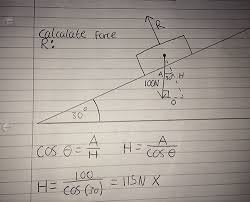 Calculate Force
R:
R
A
30
H
100N
O
30°
Cos θ = A/H H = A/Cos θ
H = 100/Cos(30) = 115N X